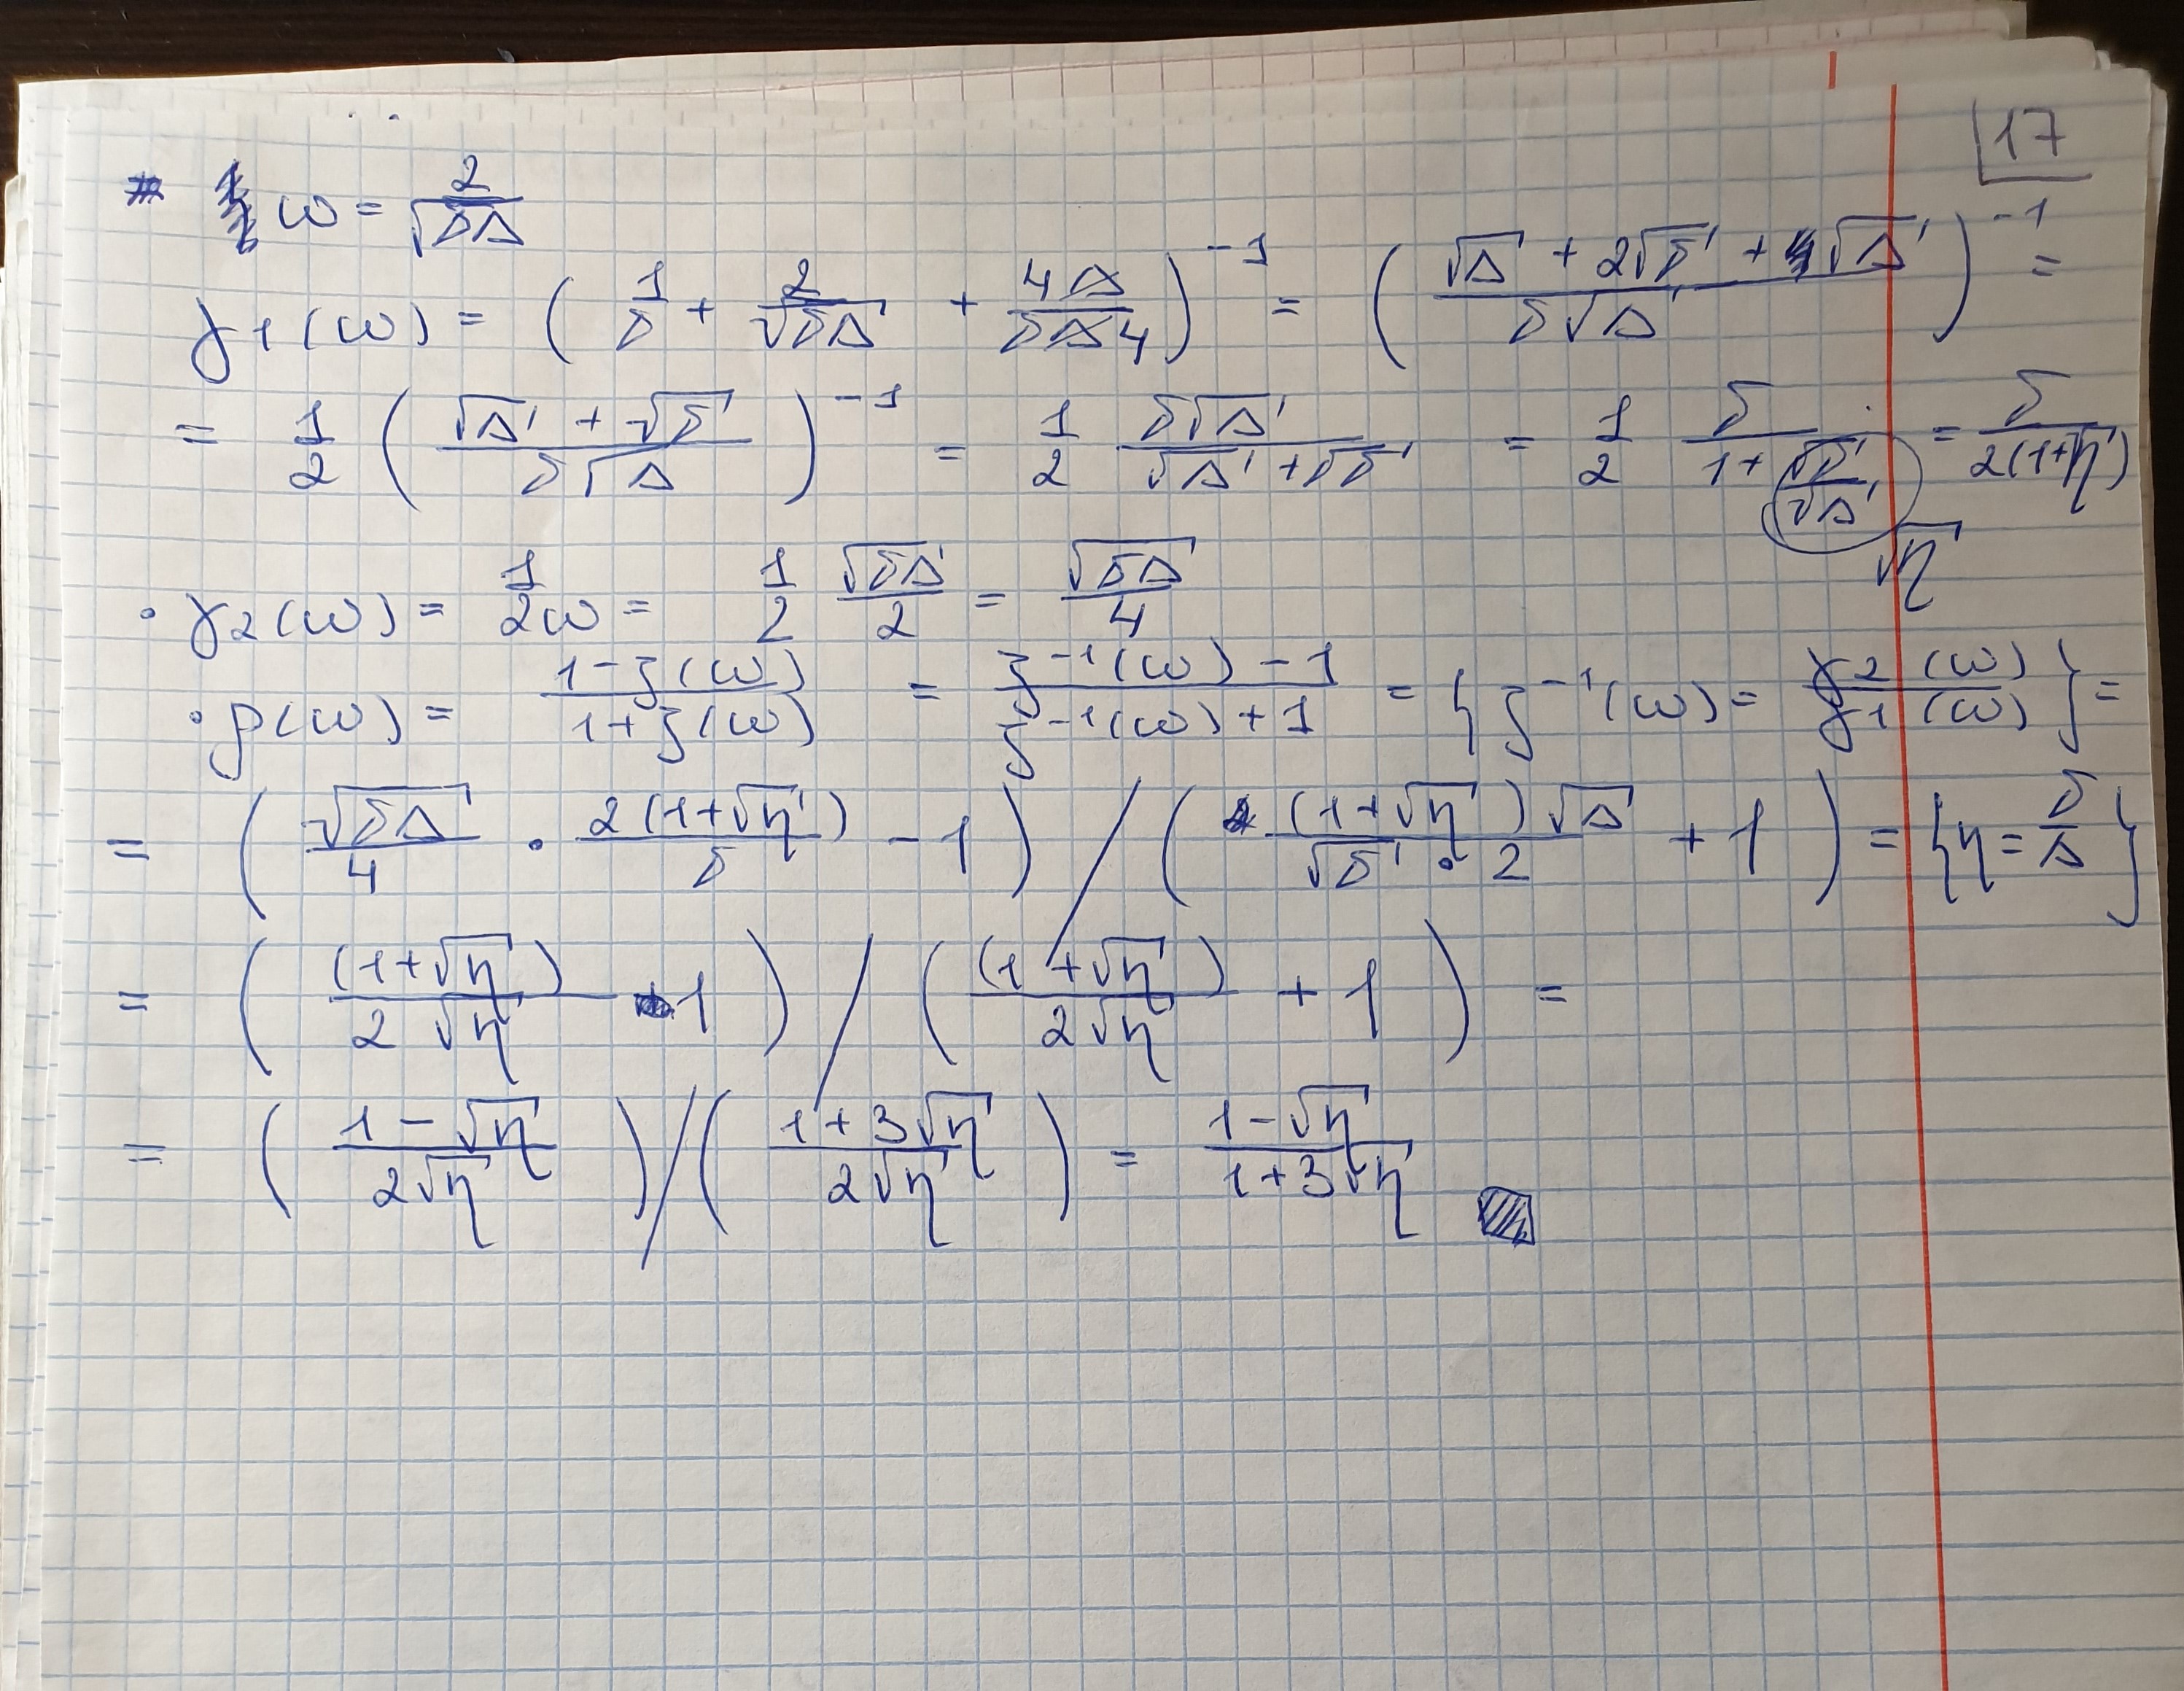 17
* ω = 2/√(δΔ)
γ₁(ω) = (1/δ + 2/√(δΔ) + 4Δ/(δΔ4))⁻¹ = ((√Δ + 2√δ + √Δ)/(δ√Δ))⁻¹ =
= 1/2 ((√Δ + √δ)/(δ√Δ))⁻¹ = 1/2 δ√Δ/(√Δ + √δ) = 1/2 δ/(1 + √δ/√Δ) = δ/(2(1+η))
√η
• γ₂(ω) = 1/(2ω) = 1/2 √(δΔ)/2 = √(δΔ)/4
• ρ(ω) = (1 - ζ(ω))/(1 + ζ(ω)) = (ζ⁻¹(ω) - 1)/(ζ⁻¹(ω) + 1) = {ζ⁻¹(ω) = γ₂(ω)/γ₁(ω)} =
= (√(δΔ)/4 · 2(1+√η)/δ - 1) / ((1+√η)√Δ/(√δ · 2) + 1) = {η = δ/Δ}
= ((1+√η)/(2√η) - 1) / ((1+√η)/(2√η) + 1) =
= ((1 - √η)/(2√η)) / ((1 + 3√η)/(2√η)) = (1 - √η)/(1 + 3√η)